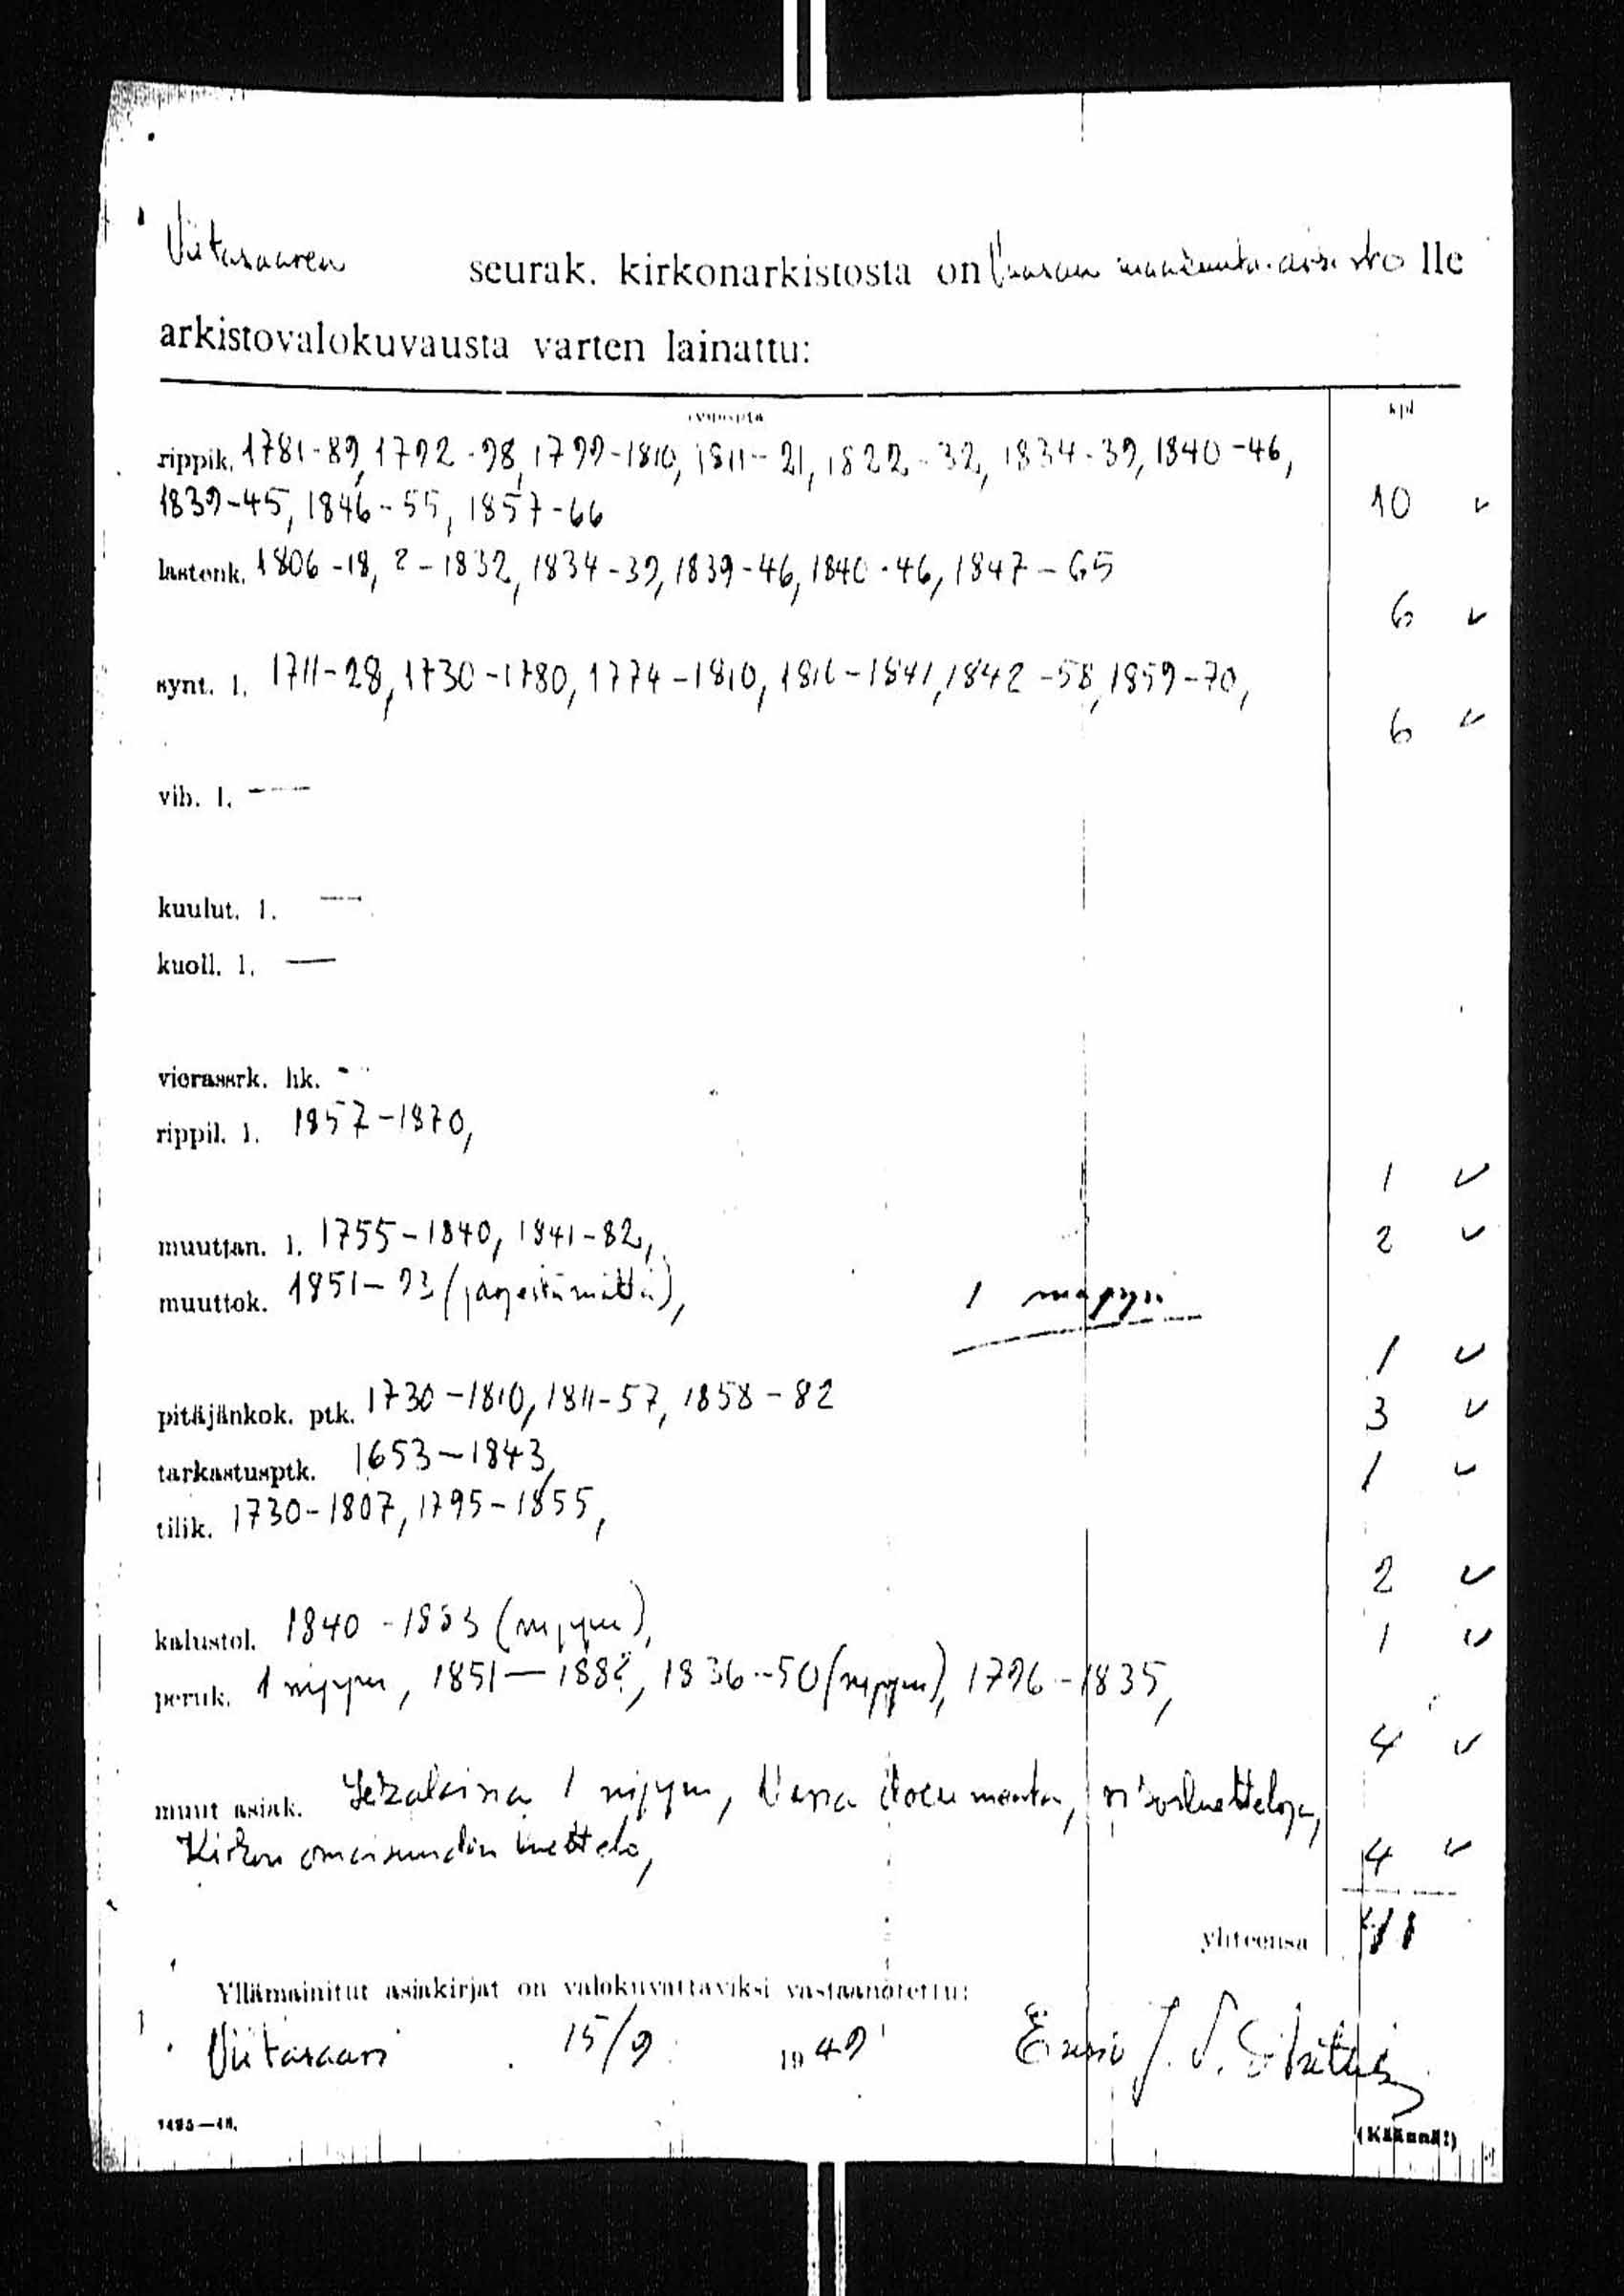 Viitasaaren seurak. kirkonarkistosta on Vaasan maakunta-arkistolle
arkistovalokuvausta varten lainattu:
vuosilta kpl
rippik. 1781-89, 1792-98, 1799-1810, 1811-21, 1822-32, 1834-39, 1840-46,
1839-45, 1846-55, 1857-66 10 ✓
lastenk. 1806-18, ?-1832, 1834-39, 1839-46, 1840-46, 1847-65
6 ✓
synt. l. 1711-28, 1730-1780, 1774-1810, 1811-1841, 1842-58, 1859-70,
6 ✓
vih. l. —
kuulut. l. —
kuoll. l. —
vierassrk. hk. -
rippil. l. 1857-1870,
1 ✓
muuttan. l. 1755-1840, 1841-82, 2 ✓
muuttok. 1851-93 (järjestämättä), 1 mappi
1 ✓
pitäjänkok. ptk. 1730-1810, 1811-57, 1858-82 3 ✓
tarkastusptk. 1653-1843, 1 ✓
tilik. 1730-1807, 1795-1855,
2 ✓
kalustol. 1840-1853 (nippu), 1 ✓
peruk. 1 nippu, 1851-188?, 1836-50 (nippu), 1796-1835,
4 ✓
muut asiak. Sekalaisia 1 nippu, documenta,
Kirkon omaisuuden luettelo, 4 ✓
yhteensä 41
Yllämainitut asiakirjat on valokuvattaviksi vastaanotettu:
Viitasaari 15/9 1949
1485—48.
(Käännä!)